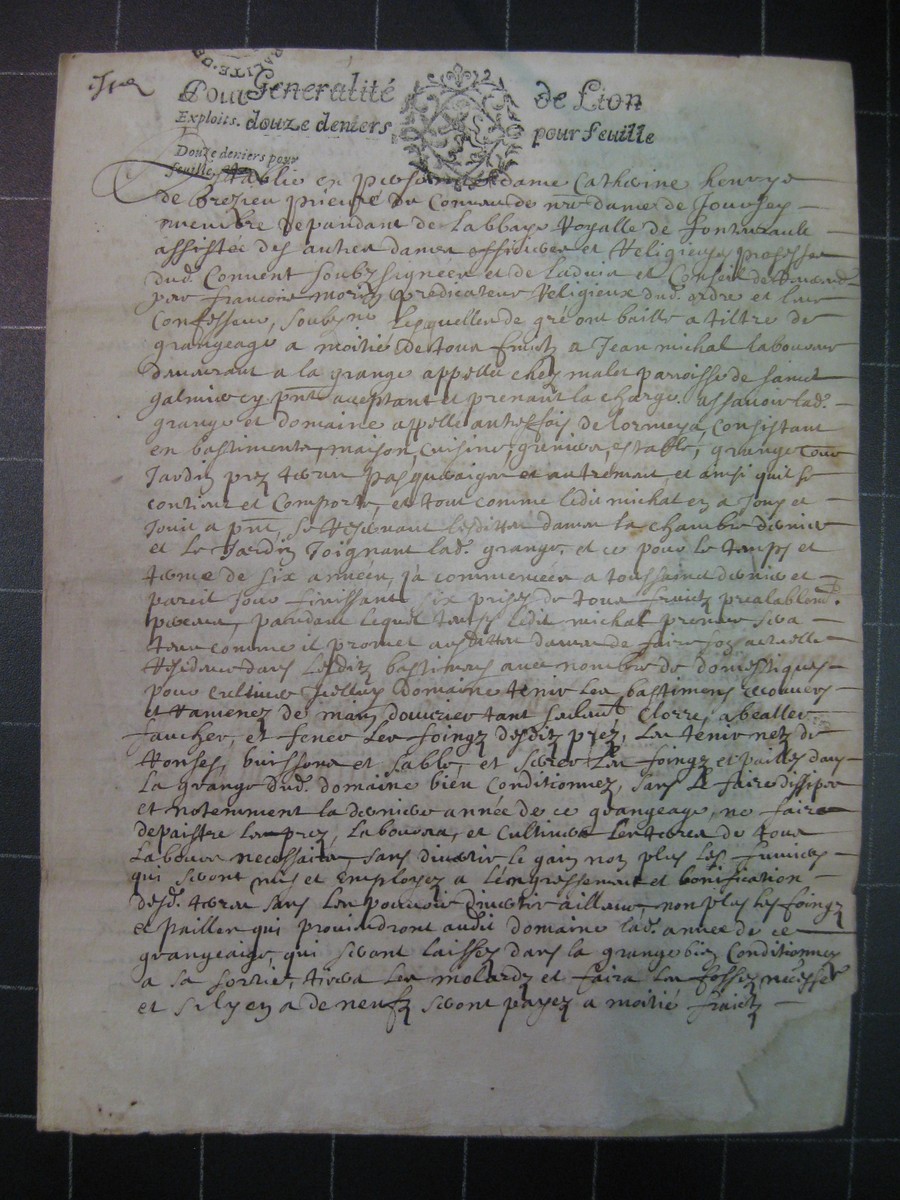 RALITE·DE
Pour Generalité de Lion
Exploits. douze deniers pour feuille
Douze deniers pour
feuille
Establie en personne dame Catherine henrye
de Brezieu prieuse du Convent de nre dame de Jourcey
membre dependant de Labbaye Royalle de fontevrault
assistée des autres dames officieres et Religieuses professes
dud. Convent soubz signees et de ladvis et Conseil de Reverend
pere francois predicateur Religieux dud. ordre et leur
Confesseur, soubsigné lesquelles de gré ont baillé a tiltre de
grangeage a moitié de tous fruictz a Jean michal laboureur
demeurant a la grange appellee chez malet parroisse de sainct
galmier cy pnt aceptant et prenant la charge assavoir lad.
grange et domaine appellé autresfois de lormeya consistant
en bastiments, maison, cuisine, greniers, estable, grange cour
Jardin prez terres pasqueraiges et autrement, et ainsi quil se
contient et Comporte, et tout comme ledit michal en a Jouy et
Jouit a pnt, se reservant lesdittes dames la chambre
et le Jardin Joignant lad. grange, et ce pour le temps et
terme de six années, ja commencées a toussainct dernier et
pareil Jour finissant six prises de tous fruictz prealablemt
perceus, pendant lequel temps ledit michal preneur sera
tenu comme il promet ausdittes dames de faire son actuelle
residence dans lesditz bastiments avec nombre de domestiques
pour cultiver Icelluy domaine tenir les bastimens recouvers
et de main douvrier tant seulemt Clorre, abealler
faucher, et fener les foingz desditz prez, les tenir netz de
Ronses, buissons et sable, et serrer les foingz et pailles dans
la grange dud. domaine bien Conditionnez, sans le faire dissiper
et notemment la derniere année de ce grangeage, ne faire
depaistre les prez, labourer, et Cultiver les terres de tous
labours necessaires sans divertir le gain non plus les fumiers
qui seront mis et employez a lengressement et bonification
desd. terres sans les pouvoir divertir ailleurs, non plus les foingz
et pailles qui proviendront audit domaine lad. année de ce
grangeaige, qui seront laissez dans la grange bien Conditionnez
a sa sortie, tirera les molardz et faira les fossez necessres
et sil y en a de neufz seront payez a moitié fraictz